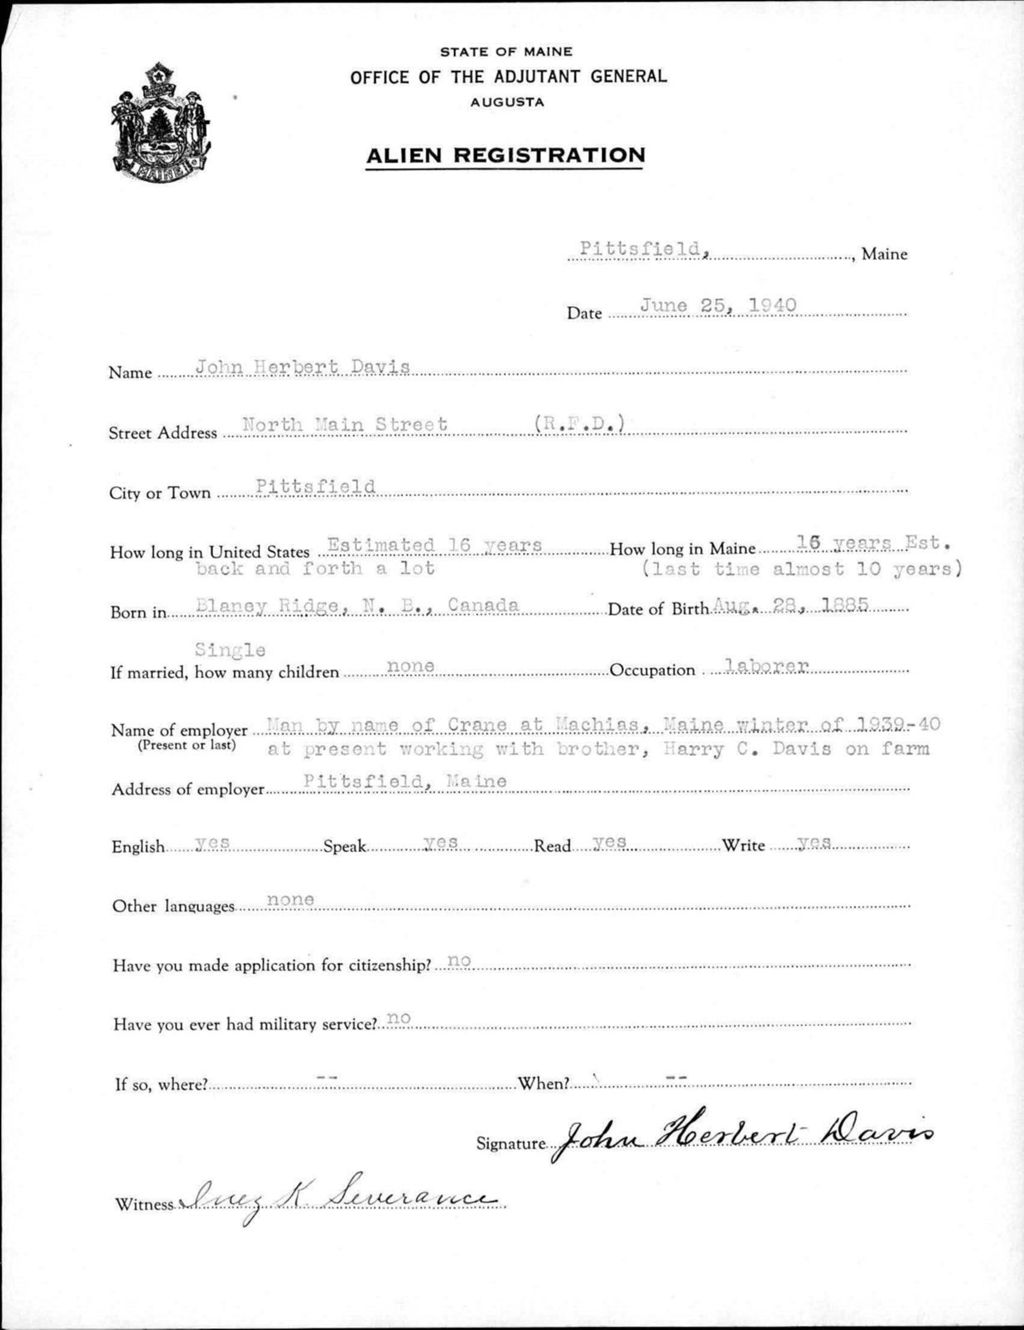 STATE OF MAINE
OFFICE OF THE ADJUTANT GENERAL
AUGUSTA
ALIEN REGISTRATION
MAINE
Pittsfield, , Maine
Date June 25, 1940
Name John Herbert Davis
Street Address North Main Street (R.F.D.)
City or Town Pittsfield
How long in United States Estimated 16 years How long in Maine 16 years Est.
back and forth a lot (last time almost 10 years)
Born in Blaney Ridge, N. B., Canada Date of Birth Aug. 28, 1885
Single
If married, how many children none Occupation laborer
Name of employer Man by name of Crane at Machias, Maine winter of 1939-40
(Present or last) at present working with brother, Harry C. Davis on farm
Address of employer Pittsfield, Maine
English yes Speak yes Read yes Write yes
Other languages none
Have you made application for citizenship? no
Have you ever had military service? no
If so, where? -- When? --
Signature John Herbert Davis
Witness Inez K. Severance